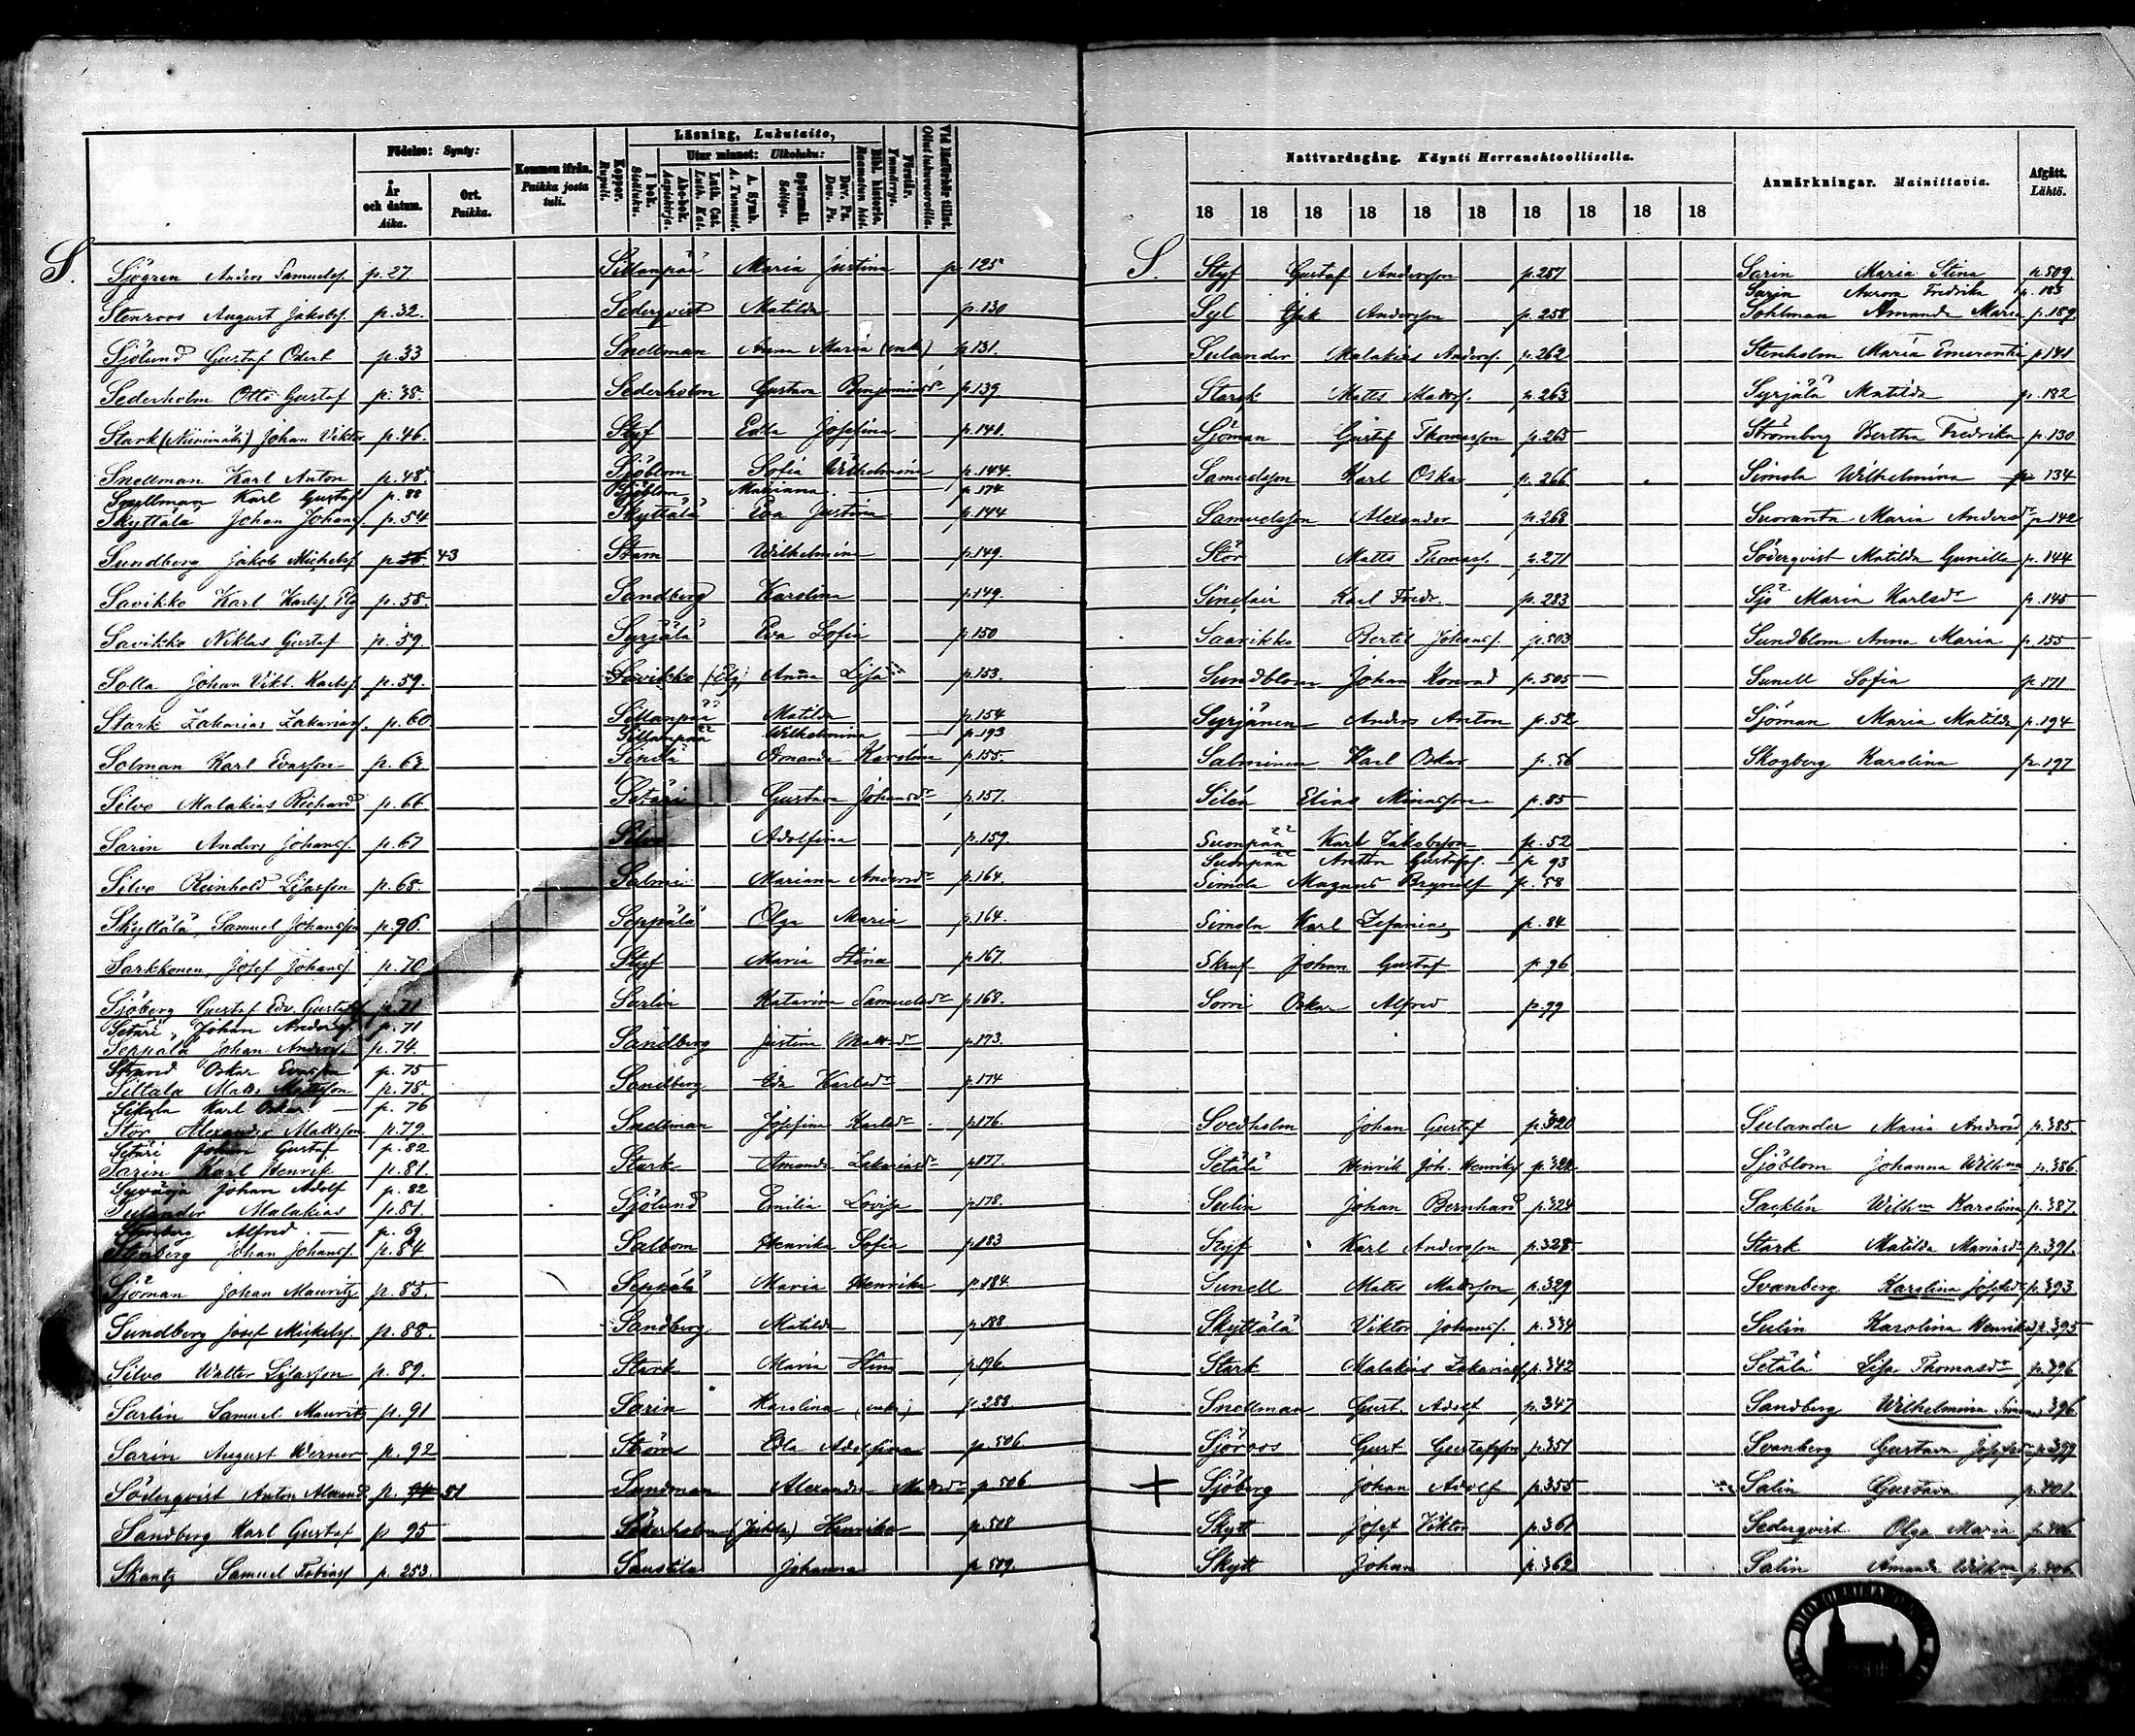 Födelse: Synty:
År och datum. Aika.
Ort. Paikka.
Kommen ifrån. Paikka josta tuli.
Koppor. Rupuli.
Läsning, Lukutaito,
Utur minnet: Ulkoluku:
I bok. Sisäluku.
Abc-bok. Aapiskirja.
Luth. Cat. Luth. Kat.
A. Symb. A. Tunnust.
Spörsmål. Selitys.
Dav. Ps. Dav. Ps.
Bibl. historia. Raamatun hist.
Förstår. Ymmärrys.
Vid läsförhör tillst. Ollut lukuvuorolla.
S.
Sjögren Anders Samuelsf. p. 27.
Stenroos August Jakobsf. p. 32.
Sjölund Gustaf Odert p. 33
Sederholm Otto Gustaf p. 38.
Stark (Niinimäki) Johan Viktor p. 46.
Snellman Karl Anton p. 48.
Snellman Karl Gustaf p. 88
Skyttälä Johan Johansf. p. 54
Sundberg Jakob Michelsf. p. 56. 43
Savikko Karl Karlsf. Elg p. 58.
Savikko Niklas Gustaf p. 59.
Solla Johan Vikt. Karlsf. p. 59.
Stark Zakarias Zakariasf. p. 60
Solman Karl Evasson p. 63
Silvo Malakias Richard p. 66
Sarin Anders Johansf. p. 67
Silvo Reinhold Lisasson p. 68.
Skyttälä Samuel Johansson p. 96.
Sarkkonen, Josef Johansf. p. 70
Sjöberg Gustaf Edv. Gustafsf. p. 71
Setäri, Johan Andersf. p. 71
Seppälä Johan Andersf. p. 74.
Strand Oskar Evasson p. 75
Siltala Matts Mattsson p. 75.
Sikala Karl Oskar — p. 76
Stör Alexander Mattsson p. 79.
Setäri Johan Gustaf p. 82
Sarin Karl Henrik p. 81.
Syväoja Johan Adolf p. 82
Sulander Malakias p. 81.
Alfred — p. 69
Stenberg Johan Johansf. p. 84
Sjöman Johan Mauritz p. 85.
Sundberg Josef Mickelsf. p. 88.
Silvo Walter Lisasson p. 89.
Sarlin Samuel Mauritz p. 91
Sarin August Werner p. 92
Söderqvist Anton Alexand. p. 94 51
Sandberg Karl Gustaf p. 95
Skantz Samuel Tobiasf. p. 253.
Sillanpää Maria Justina p. 125
Sederqvist Matilda p. 130
Snellman Anna Maria (enk.) p. 131.
Sederholm Gustava Benjaminsdr p. 139
Styf Edla Josefina p. 141.
Sjöblom Sofia Wilhelmina p. 144.
Sjöblom Mariana. — p. 174
Skyttälä Eva Justina p. 144
Stam Wilhelmina p. 149.
Sandberg Karolina p. 149.
Syrjälä Eva Sofia p. 150
Savikko (Elg) Anna Lisa p. 153.
Sillanpää Matilda p. 154
Sillanpää Wilhelmina — p. 193
Simola Amanda Karolina p. 155.
Setäri Gustava Johansdr p. 157.
Silvo Adolfina p. 159.
Salmi Mariana Andersdr p. 164.
Seppälä Olga Maria p. 164.
Styf Maria Stina p. 167.
Sarlin Katarina Samuelsdr p. 168.
Sandberg Justina Mattsdr p. 173.
Sandberg Ida Karlsdr p. 174
Snellman Josefina Karlsdr p. 176.
Stark Amanda Zakariasdr p. 177.
Sjölund Emilia Lovisa p. 178.
Salbom Henrika Sofia p. 183
Seppälä Maria Henrika p. 184.
Sandberg Matilda p. 188.
Stark Maria Stina p. 196
Sarin Karolina (enk.) p. 288.
Ström Edla Adolfina p. 506.
Sandman Alexandra Mattsdr p. 506
Söderholm (Jukkla) Henrika p. 508
Saustila Johanna p. 509.
Nattvardsgång. Käynti Herranehtoollisella.
18 18 18 18 18 18 18 18 18 18
Anmärkningar. Mainittavia.
Afgått. Lähtö.
S.
Styf Gustaf Andersson p. 257
Syl Isak Andersson p. 258
Sulander Malakias Andersf. p. 262
Stark Matts Mattsf. p. 263
Sjöman Gustaf Thomasson p. 265
Samuelsson Karl Oskar p. 266
Samuelsson Alexander p. 268
Stör Matts Thomasf. p. 271
Sinclair Karl Fredr. p. 283
Saarikko Bertil Johansf. p. 503
Sundblom Johan Konrad p. 505
Syrjänen Anders Anton p. 52
Salminen Karl Oskar p. 56
Silén Elias Minasson p. 85
Suonpää Karl Jakobsson p. 52
Suonpää Anton Gustafsf. — p. 93
Simola Magnus Brynolf p. 58
Simola Karl Zefanias p. 84
Skruf Johan Gustaf p. 96
Sorri Oskar Alfred p. 99
Svedholm Johan Gustaf p. 320
Setälä Henrik Joh. Henriksf. p. 322
Sulin Johan Bernhard p. 324
Styf Karl Andersson p. 328.
Sunell Matts Mattsson p. 329
Skyttälä Viktor Johansf. p. 334
Stark Malakias Zakariasf. p. 342
Snellman Gust. Adolf p. 347
Sjöroos Gust Gustafsson p. 351
Sjöberg Johan Adolf p. 355
Skytt Josef Viktor p. 361
Skytt Johan p. 362
Sarin Maria Stina p. 509.
Sarin Aurora Fredrika p. 183
Sohlman Amanda Maria p. 189.
Stenholm Maria Emerentia p. 141
Syrjälä Matilda p. 182
Strömberg Bertha Fredrika p. 130
Simola Wilhelmina p. 134
Suoranta Maria Andersdr p. 142
Söderqvist Matilda Gunilla p. 144
Sjö Maria Karlsdr p. 145
Sundblom Anna Maria p. 155
Sunell Sofia p. 171
Sjöman Maria Matilda p. 194
Skogberg Karolina p. 197
Sulander Maria Andersd p. 385
Sjöblom Johanna Wilhma p. 386
Sacklin Wilhma Karolina p. 387.
Stark Matilda Mariasdr p. 391.
Svanberg Karolina Josefsdr p. 393
Sulin Karolina Henriksd p. 395
Setälä Lisa Thomasdr p. 396
Sandberg Wilhelmina Simonsd 396
Svanberg Gustava Josefsdr p. 399
Salin Gustava p. 401
Sederqvist Olga Maria p. 406
Salin Amanda Wilhma p. 406